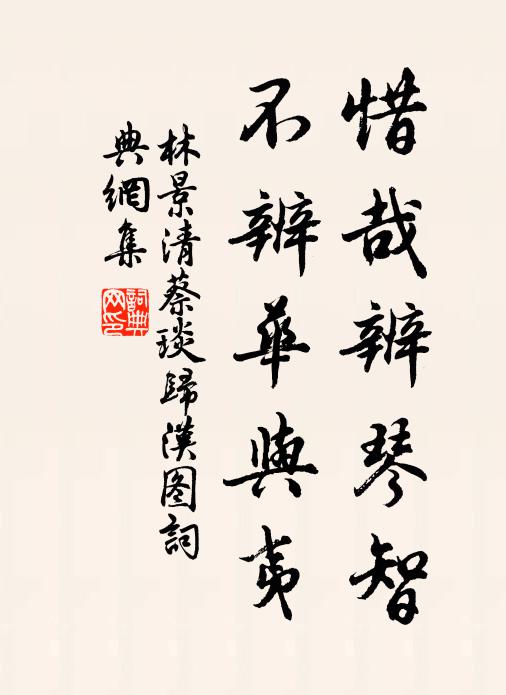 惜哉辨琴智
不辨華與夷
林景清蔡琰歸漢图詞
典網集
詞典网印